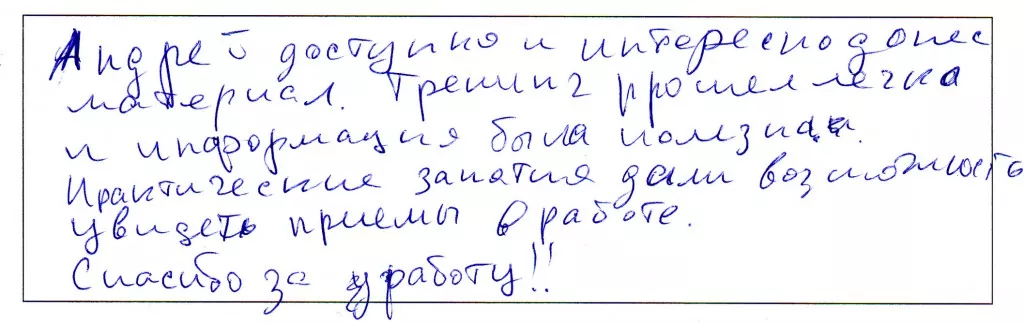 Андрей доступно и интересно донес
материал. Тренинг прошел легко
и информация была полезная.
Практические занятия дали возможность
увидеть приемы в работе.
Спасибо за работу!!